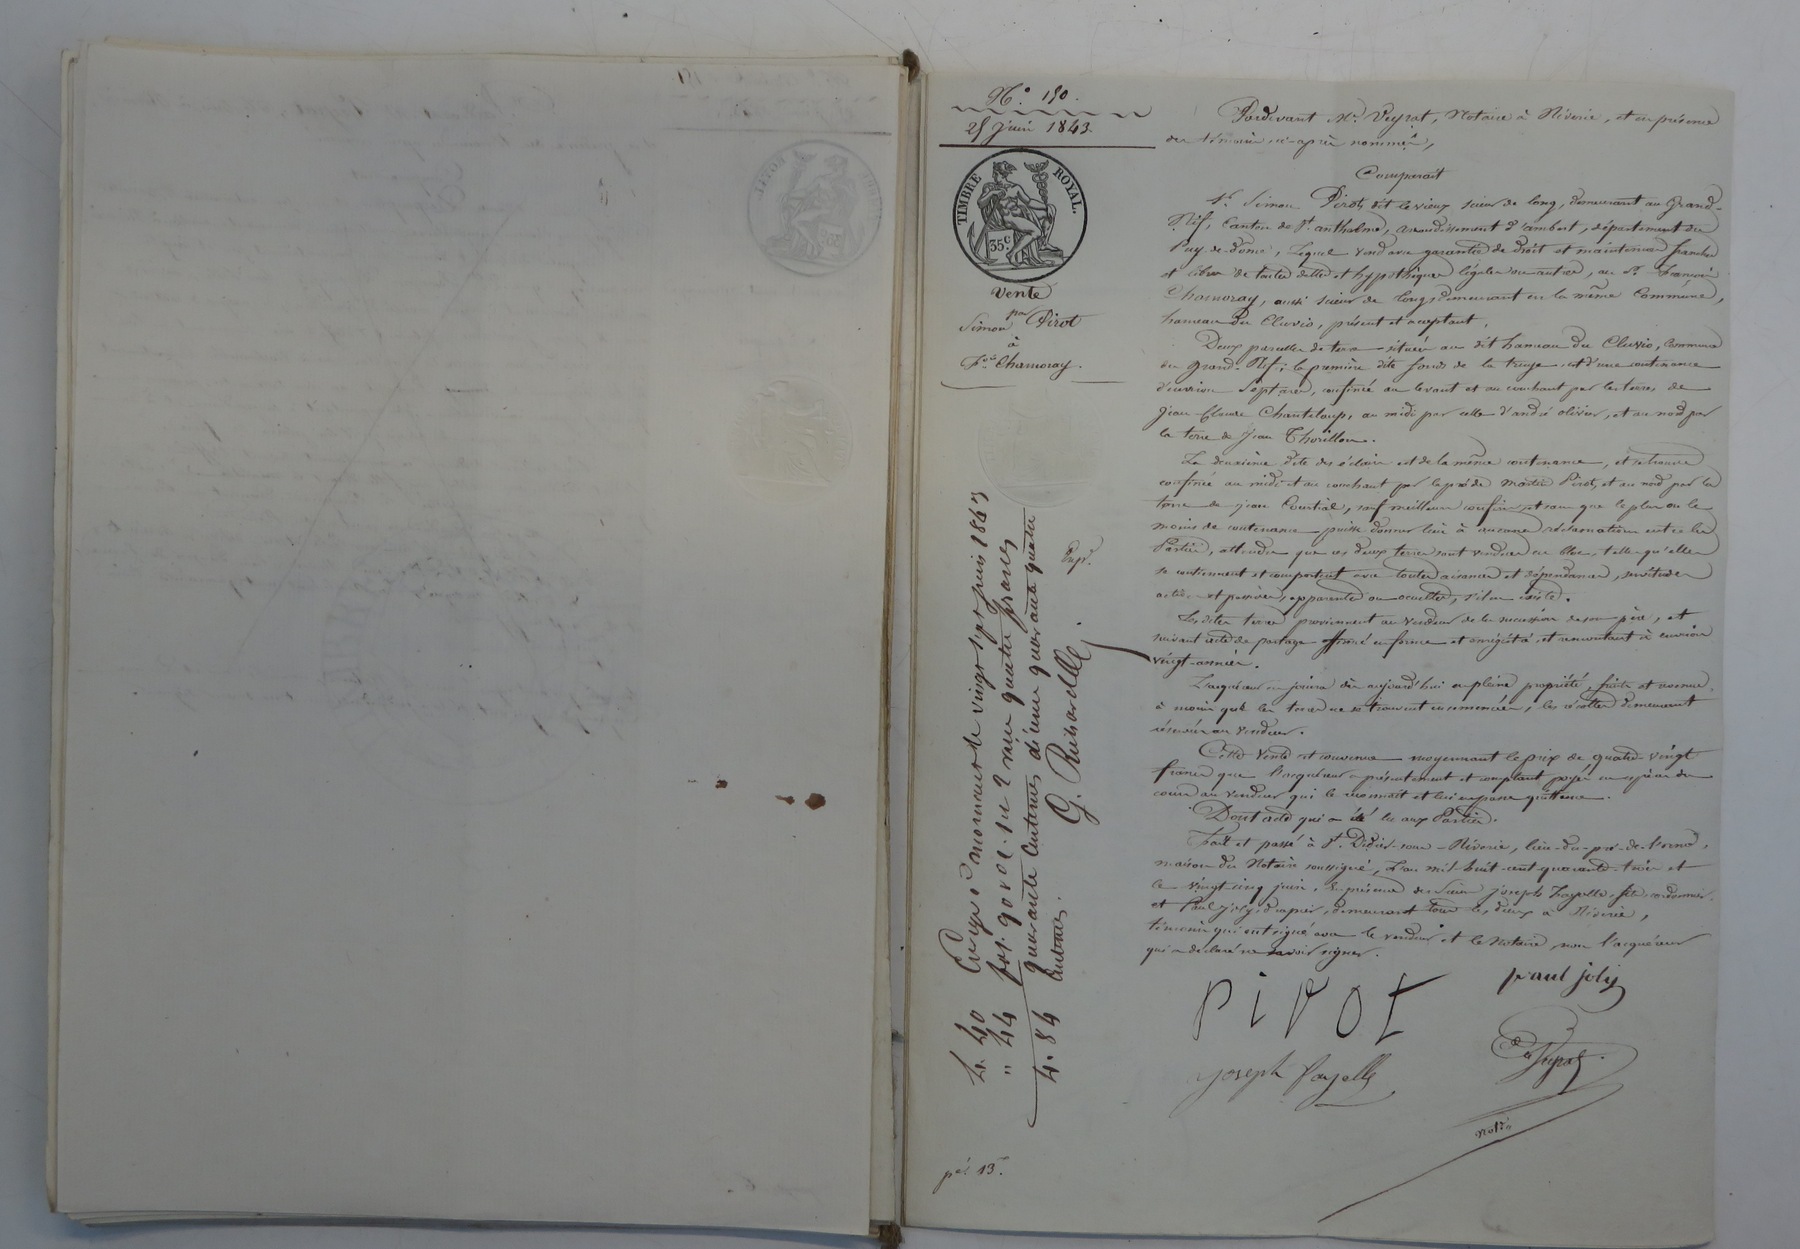 N° 190.
25 Juin 1843.
TIMBRE ROYAL.
35 c
Vente
par
Simon Pirot
à
F.ois Chamoray
Expd.
Enregé à mornant le vingt sept juin 1843
fol. 90 vo c. 1 et 2 reçu quatre francs
quarante centimes, dixième quarante quatre
centimes.
G. Richardelle
4. 40
" 44
4. 84
pel 13.
Pardevant Me. Veyrat, Notaire à Riverie, et en présence
des témoins ci-après nommés,
Comparait
Sr. Simon Pirot, dit le vieux scieur de long, demeurant au Grand-
Rif, Canton de St. anthelme, arrondissement d'ambert, département du
Puy-de-dôme, Lequel vend avec garantie de droit et maintenue franches
et libres de toutes dettes et hypothèques légales ou autres, au Sr. François
Chamoray, aussi scieur de long, demeurant en la même Commune,
hameau du Cluvio, présent et acceptant,
Deux parcelles de terre situées au dit hameau du Cluvio, Commune
du Grand-Rif; la première dite fonds de la truye, est d'une contenance
d'environ Sept ares, confinée au levant et au couchant par les terres de
Jean Claude Chanteloup, au midi par celle d'andré olivier, et au nord par
la terre de Jean Thorillon.
La deuxième dite des éclairs est de la même contenance, et se trouve
confinée au midi et au couchant par le pré de Martin Pirot, et au nord par la
terre de jean Courtial, sauf meilleurs confins, et sans que le plus ou le
moins de contenance puisse donner lieu à aucune réclamation entre les
Parties, attendu que ces deux terres sont vendues en bloc, telles qu'elles
se contiennent et comportent avec toutes aisances et dépendances, servitudes
actives et passives, apparentes ou occultes, s'il en existe.
Les dites terres proviennent au vendeur de la succession de son père, et
suivant acte de partage en forme et enregistré et remontant à environ
vingt-années.
L'acquéreur en jouira dès aujourd'hui en pleine propriété, fruits et revenus,
à moins que les terres ne se trouvent ensemencées, les récoltes demeurant
réservées au vendeur.
Cette vente est convenue moyennant le prix de quatre-vingt
francs que l'acquéreur a présentement et comptant payés en espèces de
cours au vendeur qui le reconnait et lui en passe quittance.
Dont acte qui a été lu aux Parties.
Fait et passé à St. Didier-sous-Riverie, lieu-du-pré-de-l'orme,
maison du Notaire soussigné, L'an mil-huit-cent-quarante-trois et
le vingt-cinq juin, En présence des Sieurs Joseph Fayolle, fils, cordonnier,
et Paul Joly, drapier, demeurant tous les deux à Riverie,
témoins qui ont signé avec le vendeur et le Notaire, non l'acquéreur
qui a déclaré ne savoir signer.
PiROt
paul joly
joseph Fayolle
Veyrat
notre